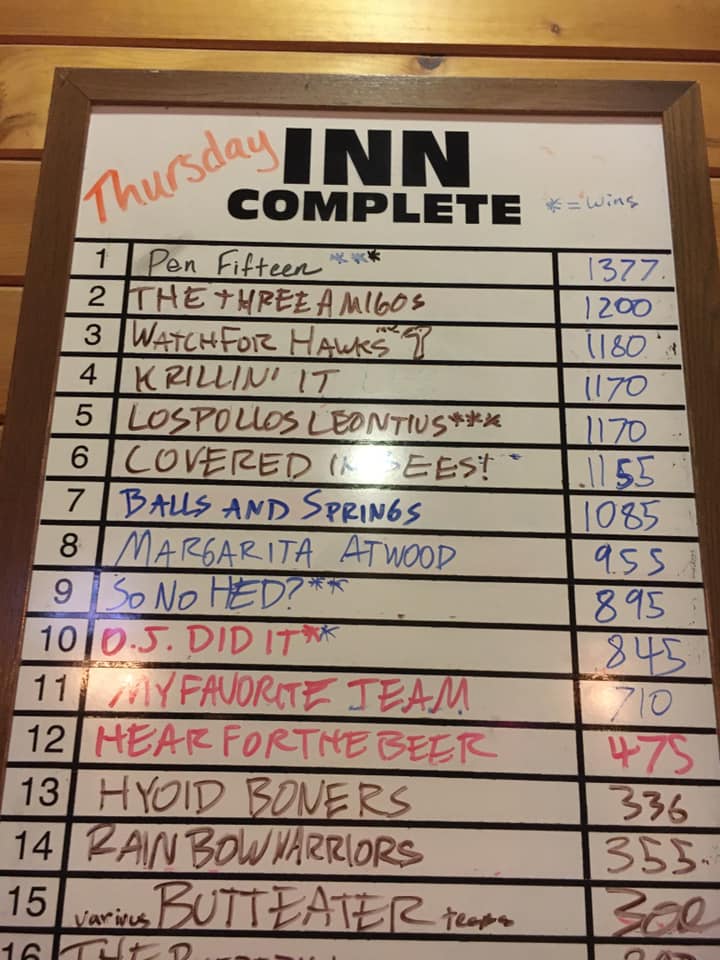 Thursday INN
COMPLETE * = wins
1 Pen Fifteen *** 1377
2 THE THREE AMIGOS 1200
3 WATCH FOR HAWKS 1180
4 KRILLIN' IT 1170
5 LOS POLLOS LEONTIUS*** 1170
6 COVERED IN BEES! * 1155
7 BALLS AND SPRINGS 1085
8 MARGARITA ATWOOD 955
9 SO NO HED?** 895
10 O.J. DID IT** 845
11 MY FAVORITE TEAM 710
12 HEAR FOR THE BEER 475
13 HYOID BONERS 336
14 RAINBOW WARRIORS 355
15 various BUTTEATER teams 300
16 THE